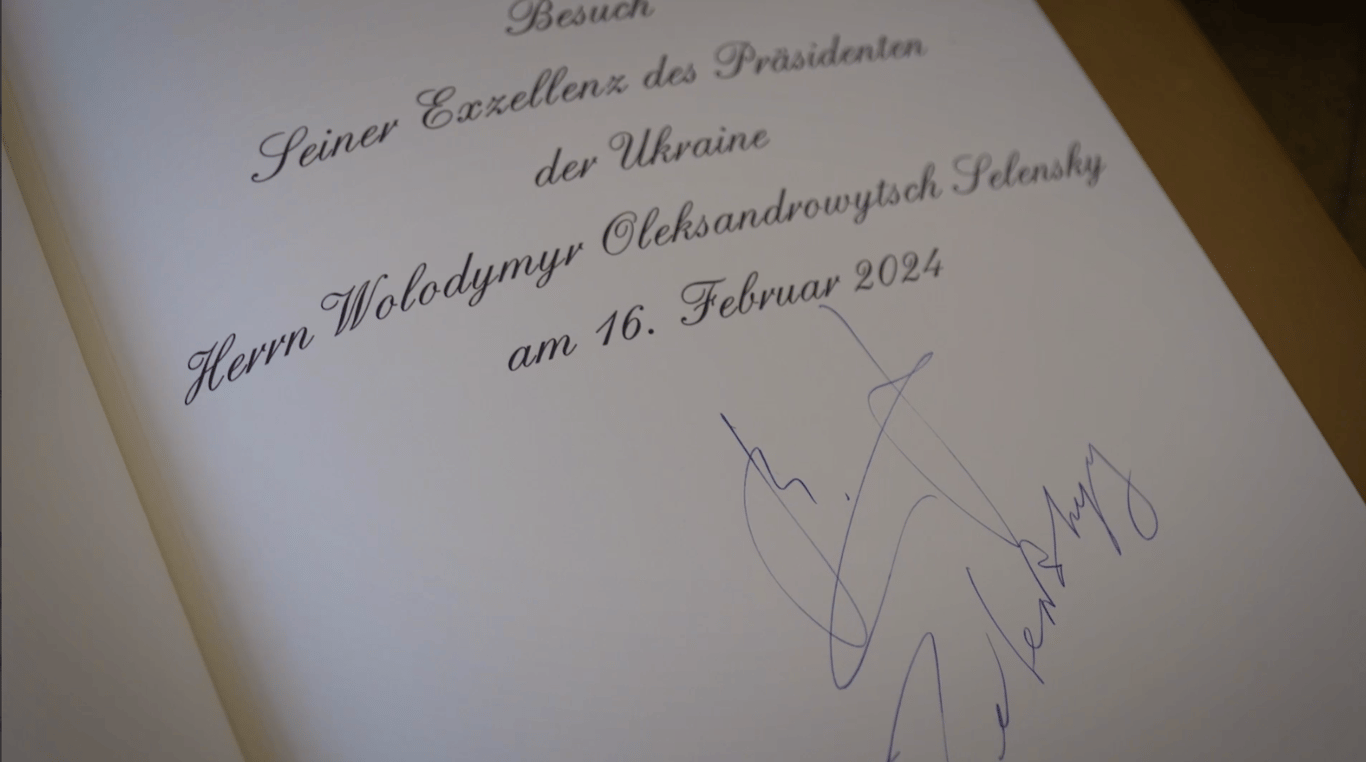 Besuch
Seiner Exzellenz des Präsidenten
der Ukraine
Herrn Wolodymyr Oleksandrowytsch Selensky
am 16. Februar 2024
Zelenskyy